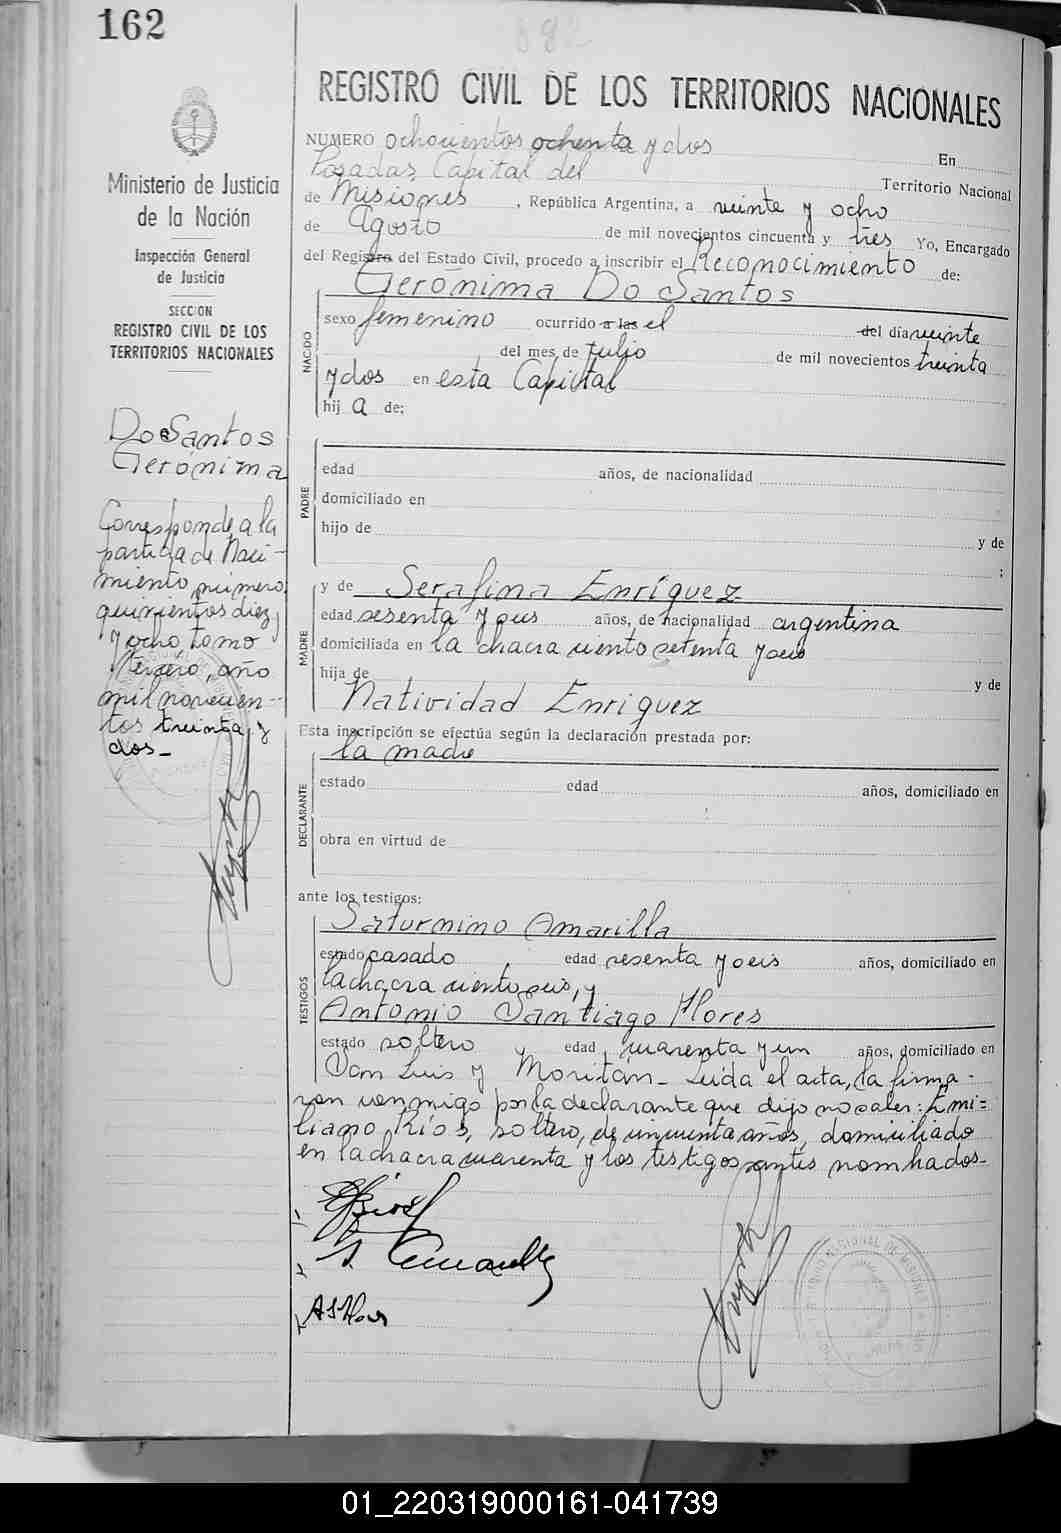 162
882
REGISTRO CIVIL DE LOS TERRITORIOS NACIONALES
Ministerio de Justicia
de la Nación
Inspección General
de Justicia
SECCION
REGISTRO CIVIL DE LOS
TERRITORIOS NACIONALES
Do Santos
Gerónima
Corresponde a la
partida de Naci-
miento número
quinientos diez
y ocho, tomo
tercero, año
mil novecien-
tos treinta y
dos_
NUMERO ochocientos ochenta y dos En
Posadas, Capital del Territorio Nacional
de Misiones, República Argentina, a veinte y ocho
de Agosto de mil novecientos cincuenta y tres Yo, Encargado
del Registro del Estado Civil, procedo a inscribir el Reconocimiento de:
Gerónima Do Santos
NACIDO
sexo femenino ocurrido a las el del día veinte
del mes de Julio de mil novecientos treinta
y dos en esta Capital
hij a de:
PADRE
edad años, de nacionalidad
domiciliado en
hijo de y de
;
MADRE
y de Serafina Enríquez
edad sesenta y seis años, de nacionalidad argentina
domiciliada en la chacra ciento setenta y seis
hija de y de
Natividad Enriquez
Esta inscripción se efectúa según la declaración prestada por:
la madre
DECLARANTE
estado edad años, domiciliado en
obra en virtud de
ante los testigos:
Saturnino Amarilla
TESTIGOS
estado casado edad sesenta y seis años, domiciliado en
la chacra ciento seis, y
Antonio Santiago Flores
estado soltero edad cuarenta y un años, domiciliado en
San Luis y Moritán_ Leída el acta, la firma-
ron conmigo por la declarante que dijo no saber: Emi=
liano Ríos, soltero, de cincuenta años, domiciliado
en la chacra cuarenta y los testigos antes nombrados_
E Rios
S. Amarilla
A S Flores
01_220319000161-041739